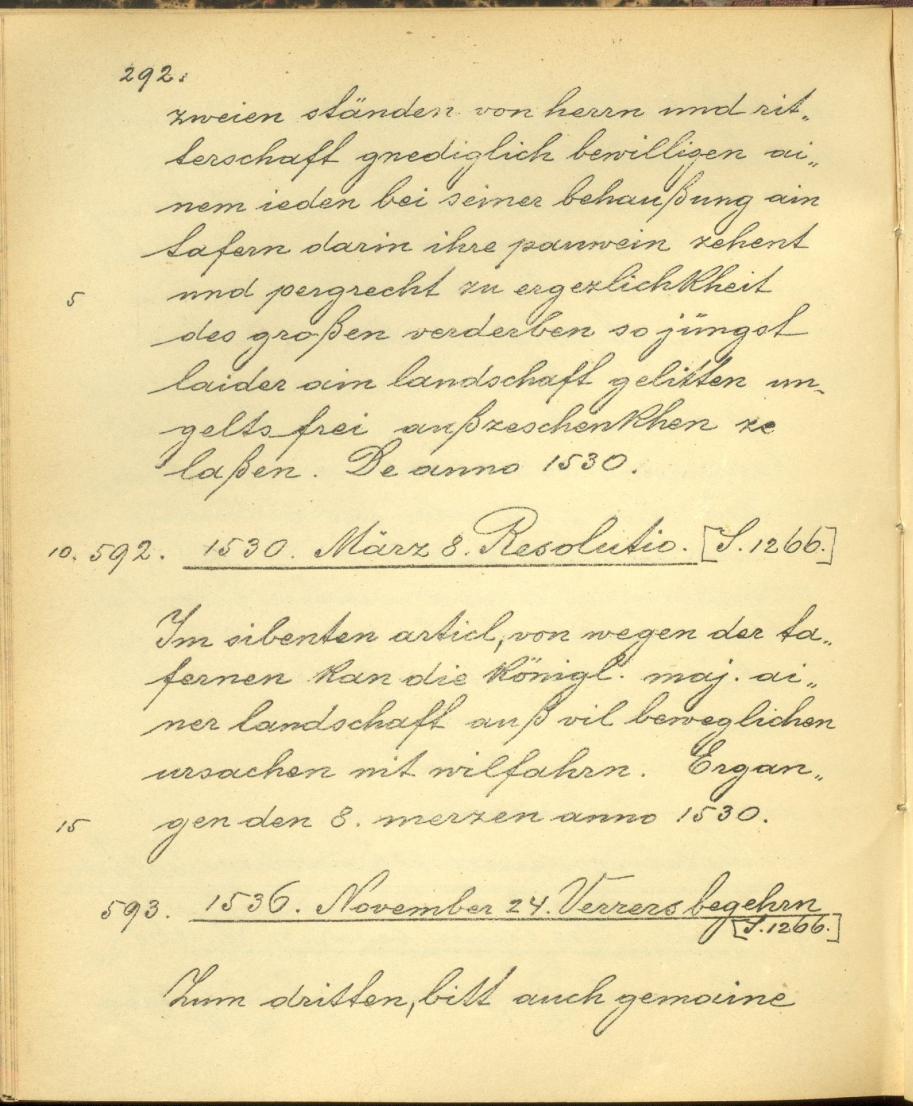 292.
zweien ständen von herrn und rit„
terschaft gnediglich bewilligen ai„
nem ieden bei seiner behaußung ain
tafern darin ihre pauwein zehent
5 und pergrecht zu ergezlichkheit
des großen verderben so jüngst
laider ain landschaft gelitten un„
gelts frei außzeschenkhen ze
laßen. De anno 1530.
10. 592. 1530. März 8. Resolutio. [S. 1266.]
Im sibenten articl, von wegen der ta„
fernen kan die königl. maj. ai„
ner landschaft auß vil beweglichen
ursachen nit wilfahrn. Ergan„
15 gen den 8. merzen anno 1530.
593. 1536. November 24. Verrers begehrn
[S. 1266.]
Zum dritten, bitt auch gemaine